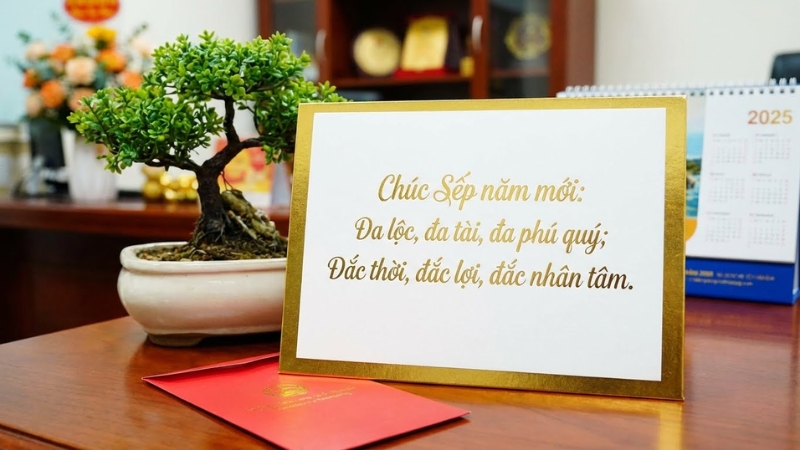 Chúc Sếp năm mới:
Đa lộc, đa tài, đa phú quý;
Đắc thời, đắc lợi, đắc nhân tâm.
2025